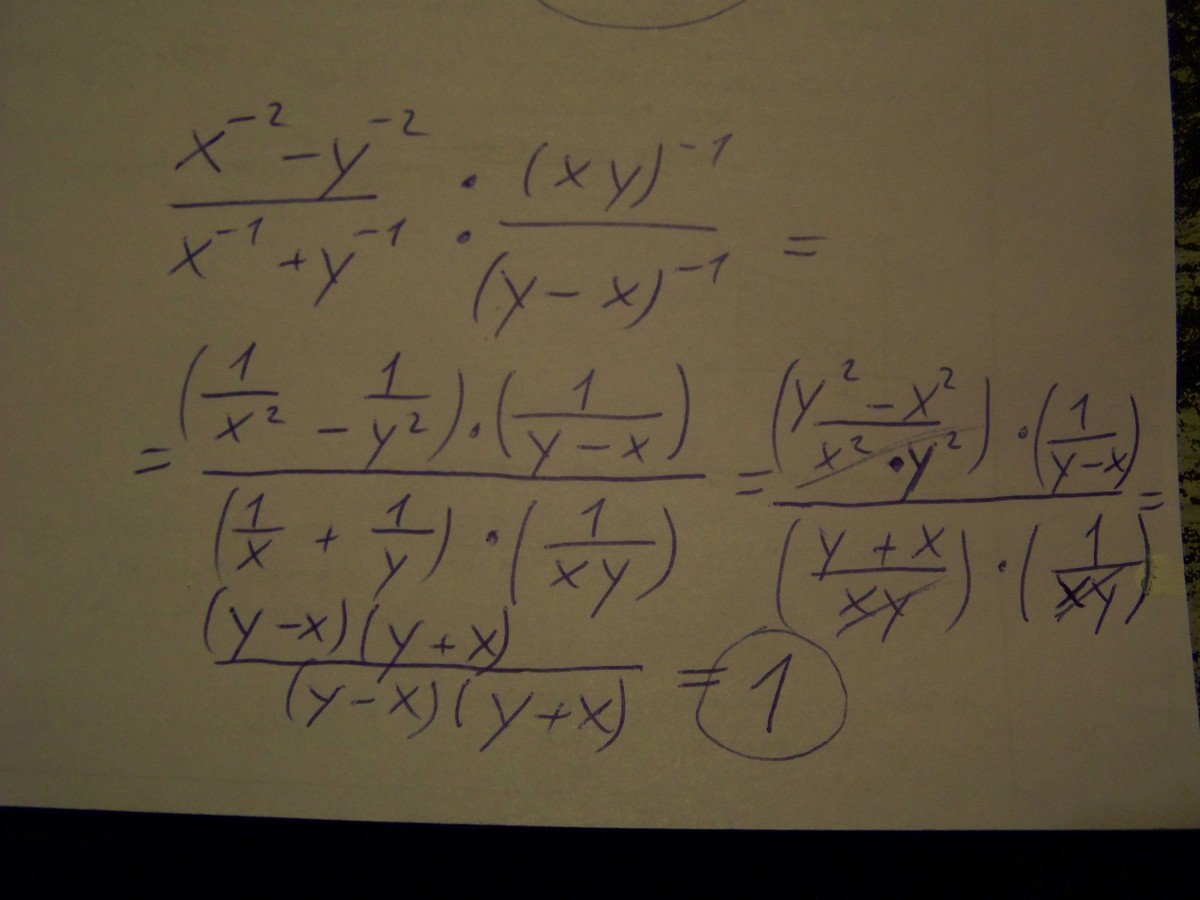 x⁻² - y⁻² / x⁻¹ + y⁻¹ : (xy)⁻¹ / (y - x)⁻¹ =
= (1/x² - 1/y²) · (1/y - x) / (1/x + 1/y) · (1/xy) = (y² - x² / x² · y²) · (1/y - x) / (y + x / xy) · (1/xy) =
(y - x)(y + x) / (y - x)(y + x) = 1